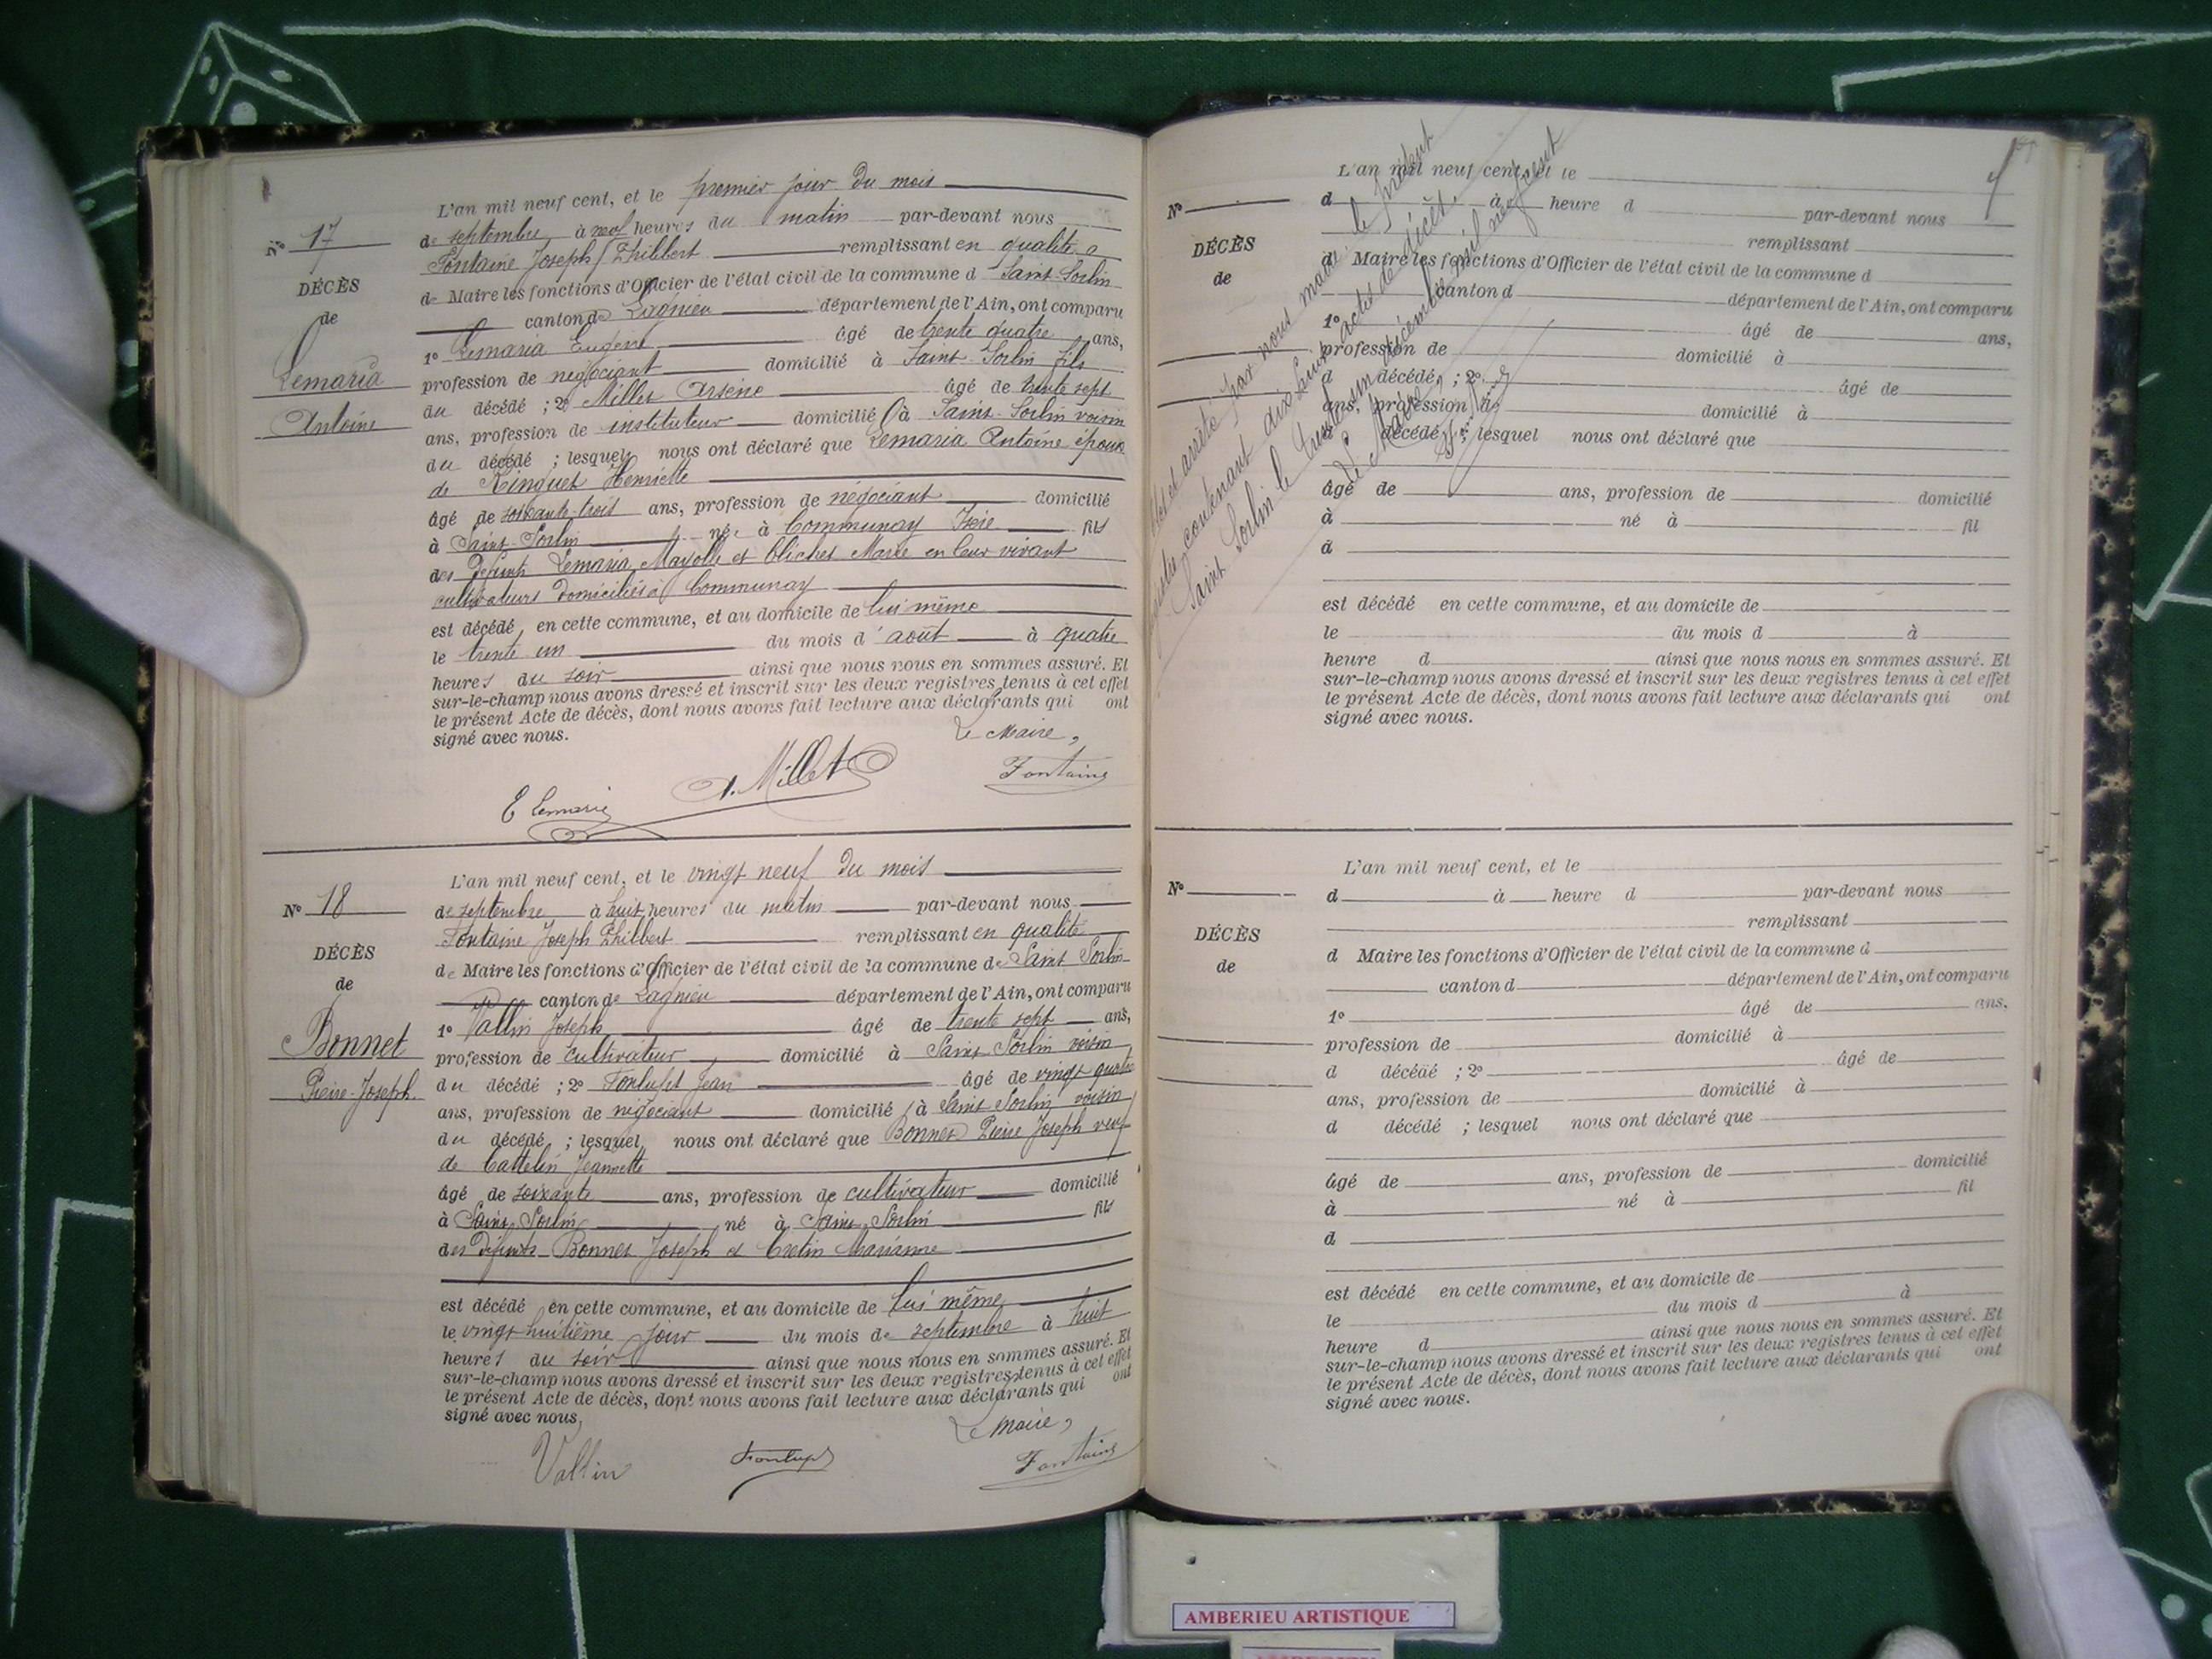 L'an mil neuf cent, et le premier jour du mois
N° 17
de septembre à neuf heures du matin par-devant nous
Fontaine Joseph Philibert remplissant en qualité
DÉCÈS
de Maire les fonctions d'Officier de l'état civil de la commune d Saint-Sorlin
de
canton de Lagnieu département de l'Ain, ont comparu
1° Lemaria Eugène âgé de trente quatre ans,
Lemaria
profession de négociant domicilié à Saint-Sorlin fils
du décédé ; 2° Millet Arsène âgé de trente sept
Antoine
ans, profession de instituteur domicilié à Saint-Sorlin voisin
du décédé ; lesquels nous ont déclaré que Lemaria Antoine époux
de Henriette
âgé de soixante-trois ans, profession de négociant domicilié
à Saint-Sorlin né à Communay Isère fils
des défunts Lemaria et Marie en leur vivant
cultivateurs domiciliés à Communay
est décédé en cette commune, et au domicile de lui même
le trente un du mois d'août à quatre
heures du soir ainsi que nous nous en sommes assuré. Et
sur-le-champ nous avons dressé et inscrit sur les deux registres tenus à cet effet
le présent Acte de décès, dont nous avons fait lecture aux déclarants qui ont
signé avec nous.
Le Maire,
E Lemaria A. Millet Fontaine
L'an mil neuf cent, et le vingt neuf du mois
N° 18
de septembre à huit heures du matin par-devant nous
Fontaine Joseph Philibert remplissant en qualité
DÉCÈS
de Maire les fonctions d'Officier de l'état civil de la commune de Saint Sorlin
de
canton de Lagnieu département de l'Ain, ont comparu
1° Vallin Joseph âgé de trente sept ans,
Bonnet
profession de cultivateur domicilié à Saint-Sorlin voisin
du décédé ; 2° Fontupt Jean âgé de vingt quatre
Pierre-Joseph
ans, profession de négociant domicilié à Saint-Sorlin voisin
du décédé ; lesquels nous ont déclaré que Bonnet Pierre Joseph veuf
de Cattelin Jeannette
âgé de soixante ans, profession de cultivateur domicilié
à Saint-Sorlin né à Saint-Sorlin fils
des défunts Bonnet Joseph et Marianne
est décédé en cette commune, et au domicile de lui même
le vingt huitième jour du mois de septembre à huit
heures du soir ainsi que nous nous en sommes assuré. Et
sur-le-champ nous avons dressé et inscrit sur les deux registres tenus à cet effet
le présent Acte de décès, dont nous avons fait lecture aux déclarants qui ont
signé avec nous.
Le Maire,
Vallin Fontupt Fontaine
L'an mil neuf cent, et le
N°
d à heure d par-devant nous
remplissant
DÉCÈS
d Maire les fonctions d'Officier de l'état civil de la commune d
de
canton d département de l'Ain, ont comparu
1° âgé de ans,
profession de domicilié à
d décédé ; 2° âgé de
ans, profession de domicilié à
d décédé ; lesquel nous ont déclaré que
âgé de ans, profession de domicilié
à né à fil
d
est décédé en cette commune, et au domicile de
le du mois d à
heure d ainsi que nous nous en sommes assuré. Et
sur-le-champ nous avons dressé et inscrit sur les deux registres tenus à cet effet
le présent Acte de décès, dont nous avons fait lecture aux déclarants qui ont
signé avec nous.
arrêté par nous maire le présent
contenant dix huit actes de décès.
Saint Sorlin le trente un décembre mil neuf cent
Le Maire,
L'an mil neuf cent, et le
N°
d à heure d par-devant nous
remplissant
DÉCÈS
d Maire les fonctions d'Officier de l'état civil de la commune d
de
canton d département de l'Ain, ont comparu
1° âgé de ans,
profession de domicilié à
d décédé ; 2° âgé de
ans, profession de domicilié à
d décédé ; lesquel nous ont déclaré que
âgé de ans, profession de domicilié
à né à fil
d
est décédé en cette commune, et au domicile de
le du mois d à
heure d ainsi que nous nous en sommes assuré. Et
sur-le-champ nous avons dressé et inscrit sur les deux registres tenus à cet effet
le présent Acte de décès, dont nous avons fait lecture aux déclarants qui ont
signé avec nous.
AMBERIEU ARTISTIQUE